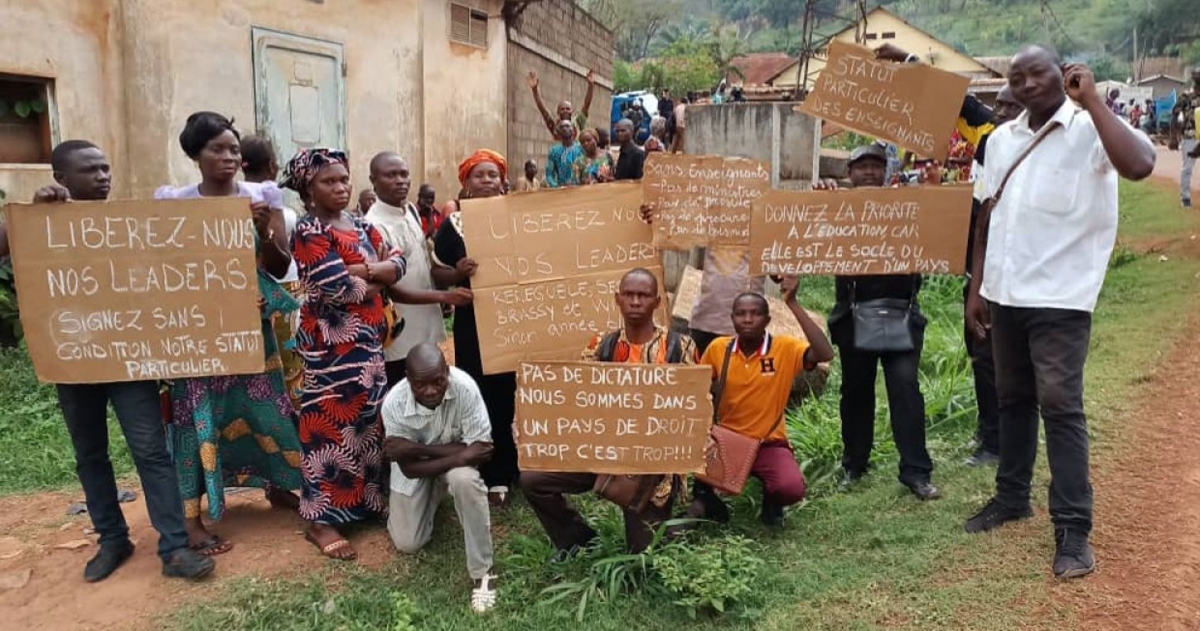 LIBEREZ-NOUS
NOS LEADERS
SIGNEZ SANS
CONDITION NOTRE STATUT
PARTICULIER
LIBEREZ NO
NOS LEADERS
KEREGUELE, SE
BRASSY et W
Sinon année
PAS DE DICTATURE
NOUS SOMMES DANS
UN PAYS DE DROIT
TROP C'EST TROP!!!
Sans Enseignants
- Pas de ministres
- Pas de
- Pas de procureu
- Pas de
DONNEZ LA PRIORITE
A L'EDUCATION CAR
ELLE EST LE SOCLE DU
DEVELOPPEMENT D'UN PAYS
STATUT
PARTICULIER
DES ENSEIGNANTS
H